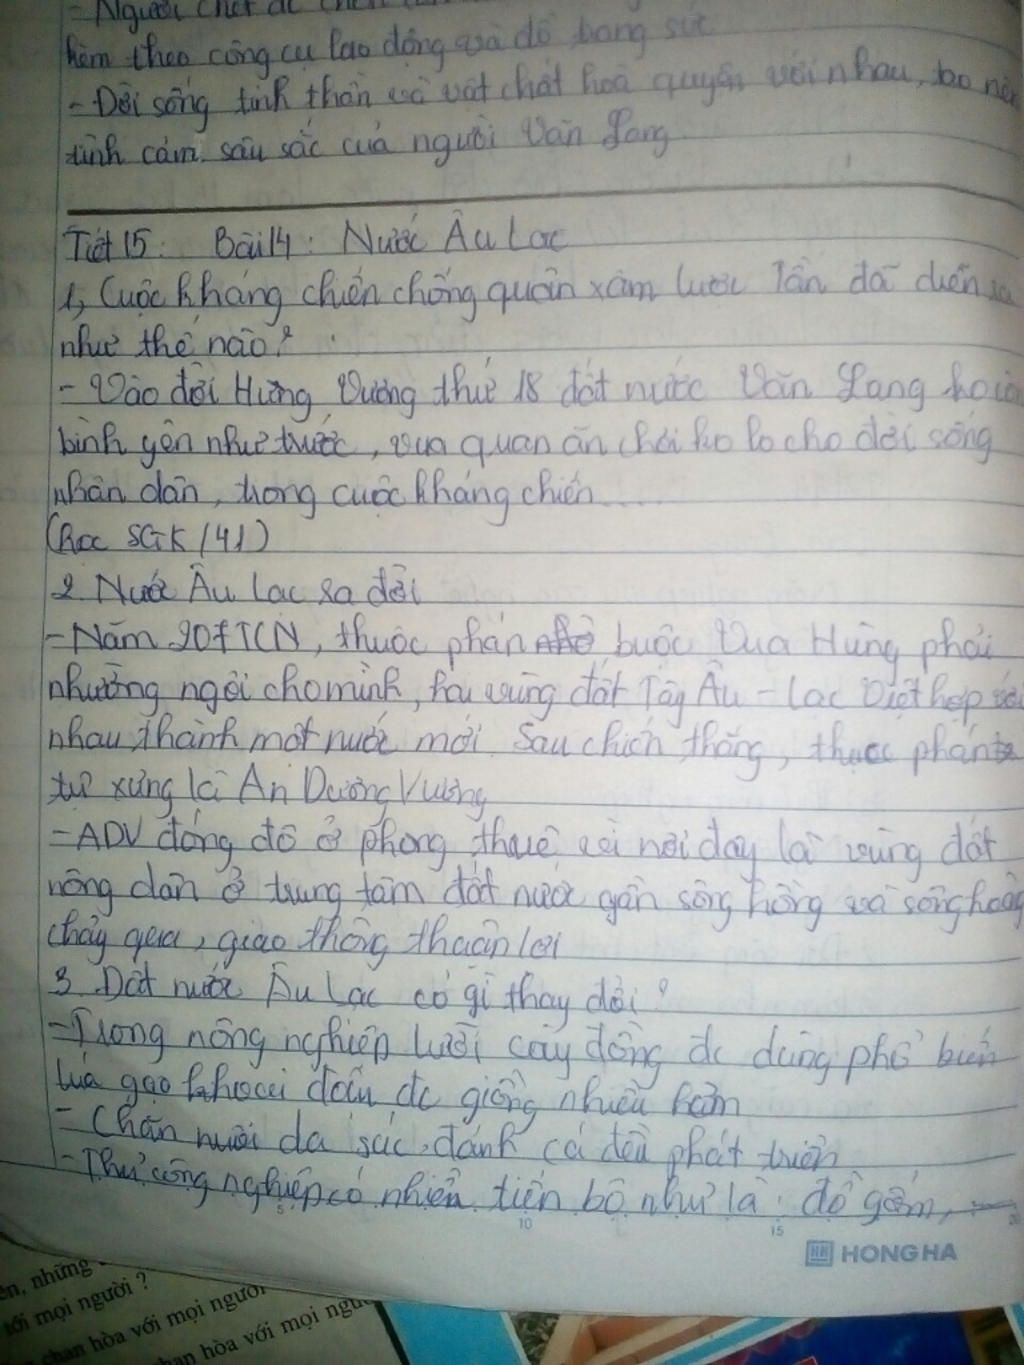 - Người chết đc chôn
kèm theo công cụ lao động và đồ trang sức
- Đời sống tinh thần và vật chất hoà quyện với nhau, tạo nên
tình cảm sâu sắc của người Văn Lang
Tiết 15: Bài 14: Nước Âu Lạc
1, Cuộc kháng chiến chống quân xâm lược Tần đã diễn ra
như thế nào?
- Vào đời Hùng Vương thứ 18 đất nước Văn Lang ko còn
bình yên như trước, vua quan ăn chơi ko lo cho đời sống
nhân dân, trong cuộc kháng chiến....
(học SGK/41)
2. Nước Âu Lạc ra đời
- Năm 207TCN, thuộc phán buộc Vua Hùng phải
nhường ngôi cho mình, hai vùng đất Tây Âu - Lạc Việt hợp với
nhau thành một nước mới. Sau chiến thắng, thục phán
tự xưng là An Dương Vương
- ADV đóng đô ở phong thuê vì nơi đây là vùng đất
nông dân ở trung tâm đất nước gần sông hồng và sông hoàng
chảy qua, giao thông thuận lợi
3. Đất nước Âu Lạc có gì thay đổi?
- Trong nông nghiệp lưỡi cày đồng đc dùng phổ biến
lúa gạo khoai đậu đc giồng nhiều hơn
- Chăn nuôi da súc, đánh cá đều phát triển
- Thủ công nghiệp có nhiều tiến bộ như là: đồ gốm,
5 10 15 20
HH HONG HA
ên, những
tới mọi người ?
chan hòa với mọi người
han hòa với mọi người